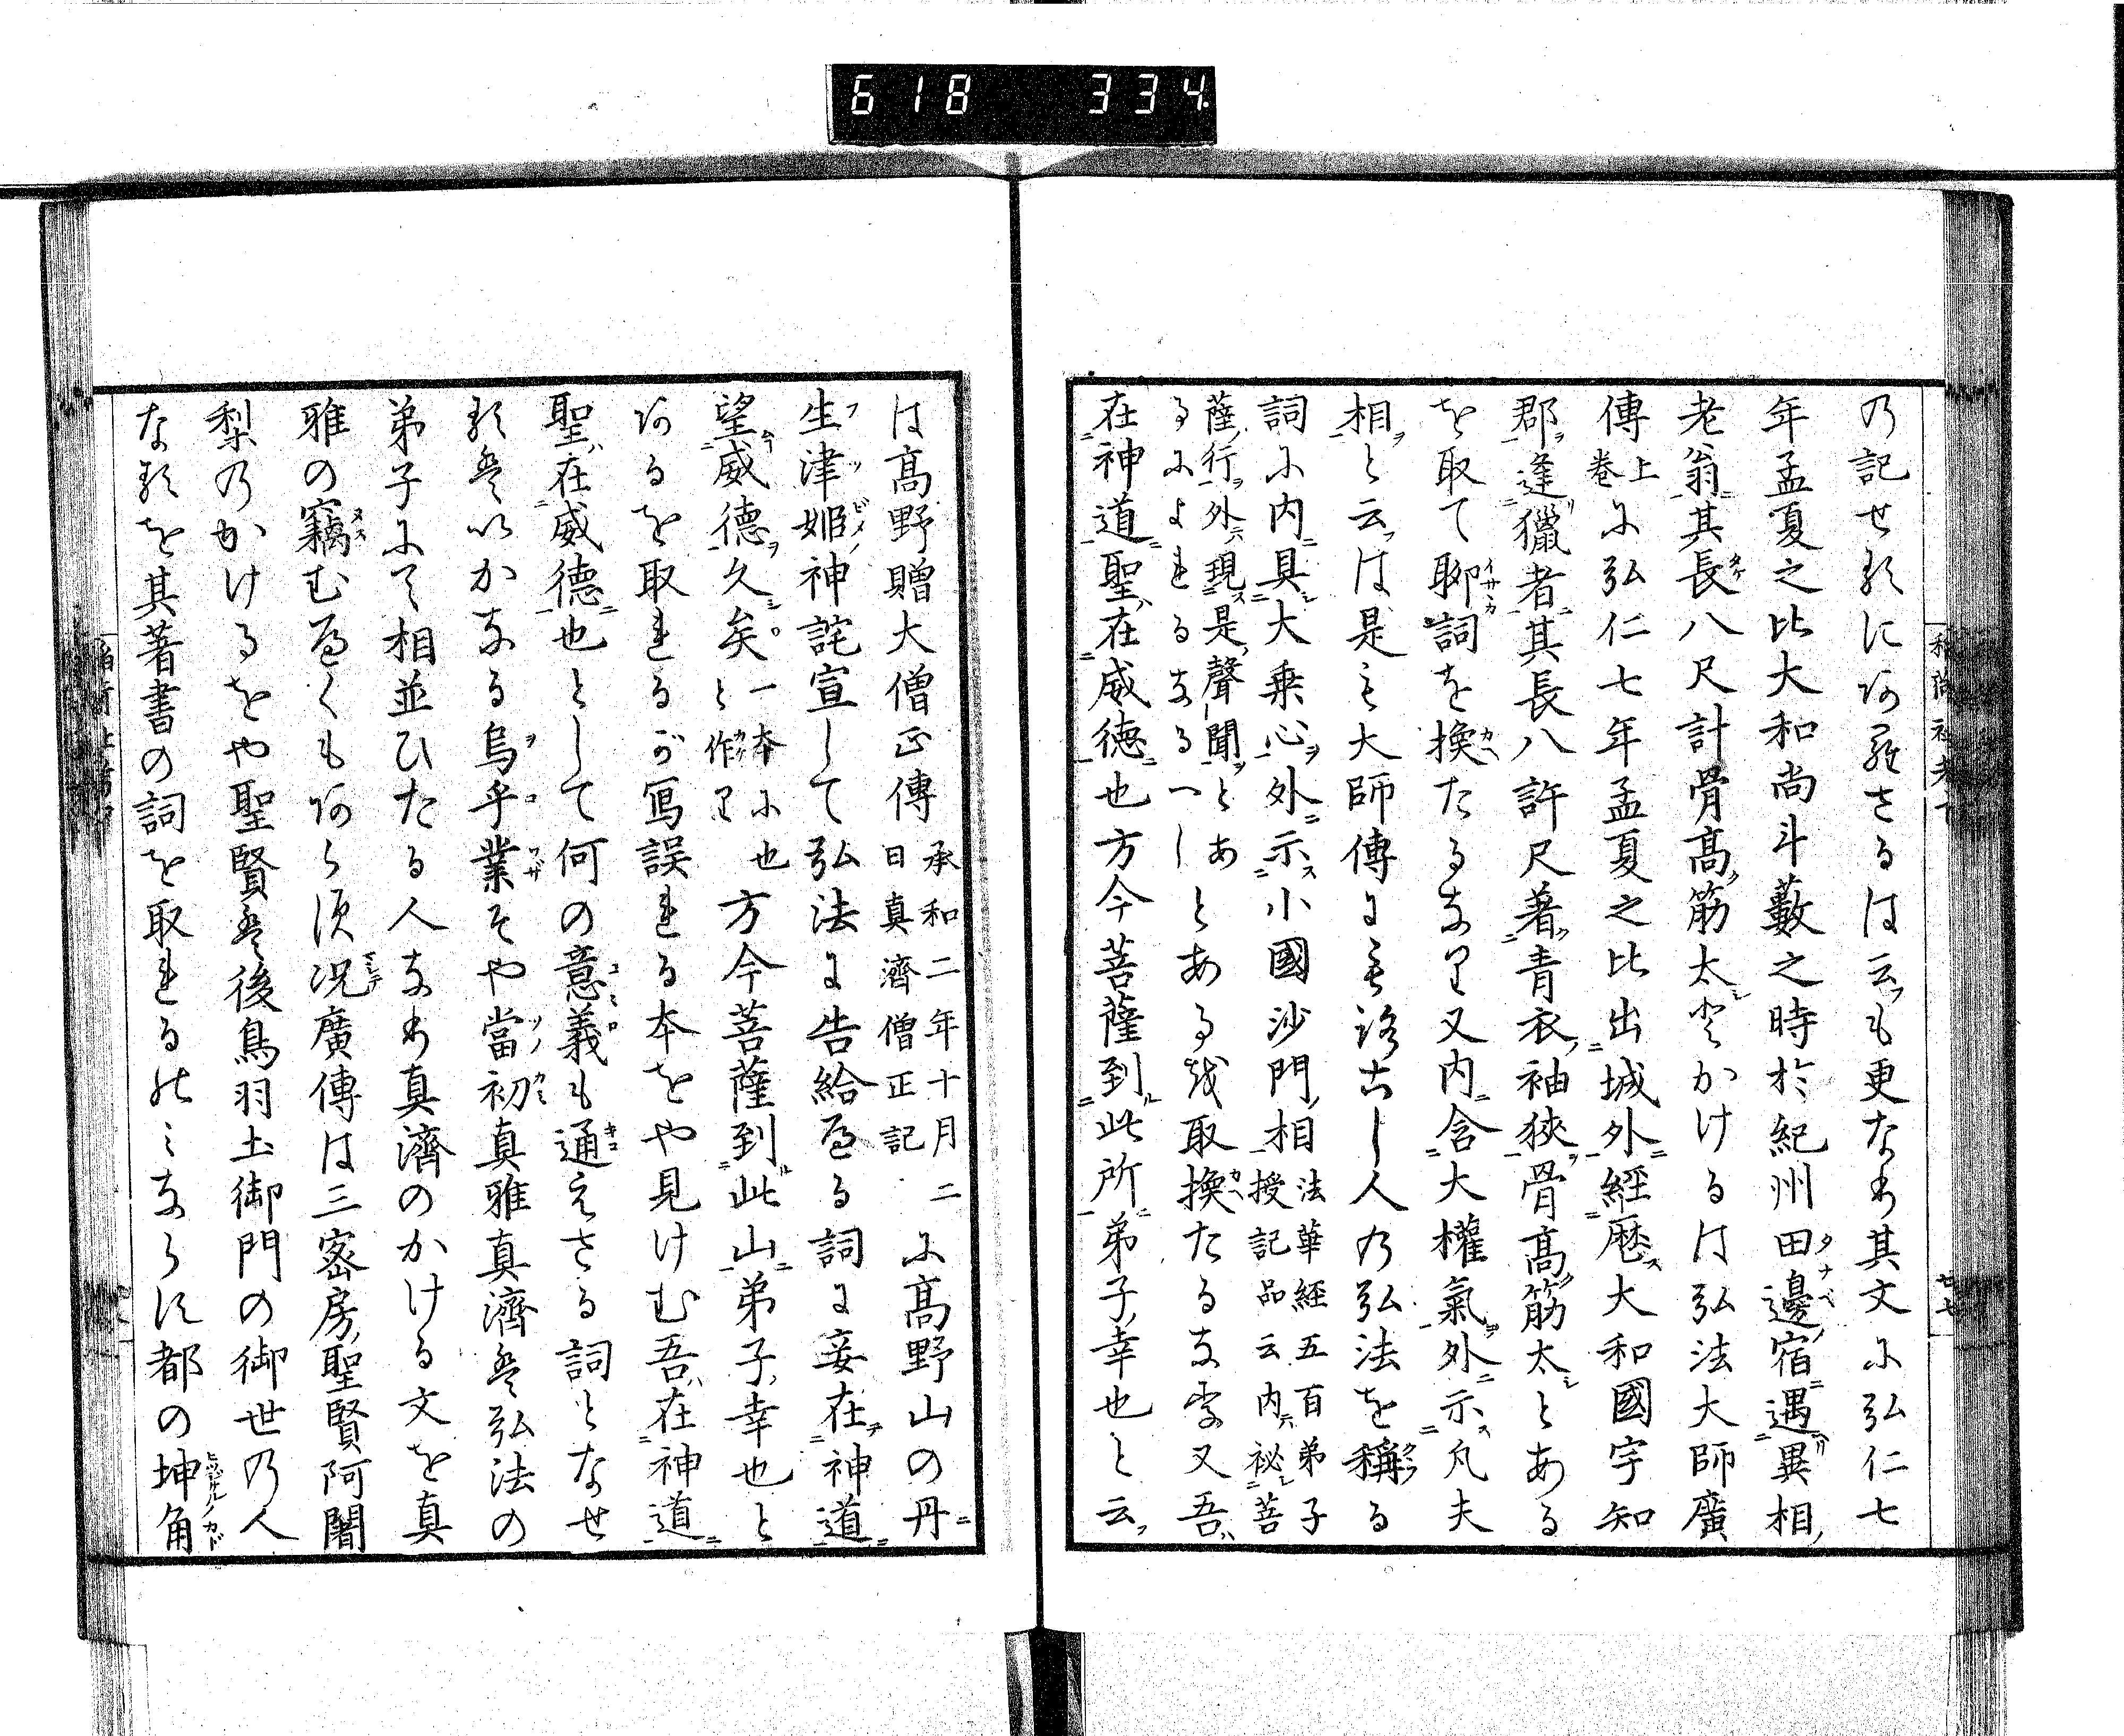 618 334
の記せるにあらさるは云も更なり其文に弘仁七
年孟夏之比大和尚斗藪之時於紀州田邊宿遇異相
老翁其長八尺計骨高筋太とかけるは弘法大師廣
傳上卷に弘仁七年孟夏之比出城外經歴大和國宇知
郡逢獵者其長八許尺著青衣袖狹骨高筋太とある
を取て聊詞を換たるなり又内含大權氣外示凡夫
相と云は是も大師傳に
人の弘法を稱る
詞に内具大乗心外示小國沙門相法華經五百弟子
授記品云内祕菩
薩行外現是聲聞とあ
るによれるなるへしとある
を取換たるなり又吾
在神道聖在威德也方今菩薩到此所弟子幸也と云
は高野贈大僧正傳承和二年十月二
日真濟僧正記に高野山の丹
生津姫神託宣して弘法に告給へる詞に妾在神道
望威德久矣一本に也
と作り方今菩薩到此山弟子幸也と
あるを取れるが寫誤れる本をや見けむ吾在神道
聖在威德也として何の意義も通えさる詞となせ
るはいかなる烏乎業そや當初真雅真濟は弘法の
弟子にて相並ひたる人なり真濟のかける文を真
雅の竊むへくもあらす况廣傳は三密房聖賢阿闍
梨のかけるをや聖賢は後鳥羽土御門の御世の人
なるを其著書の詞を取れるのみならす都の坤角